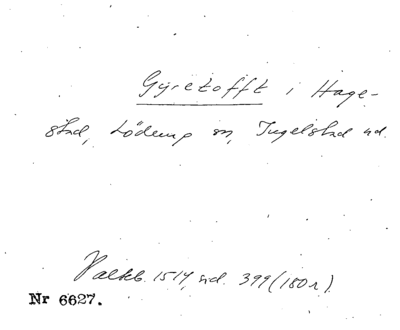 Gyretofft i Hage-
stad, Löderup sn, Ingelstad hd.
Palkb. 1514, sid. 399 (150 r)
Nr 6627.